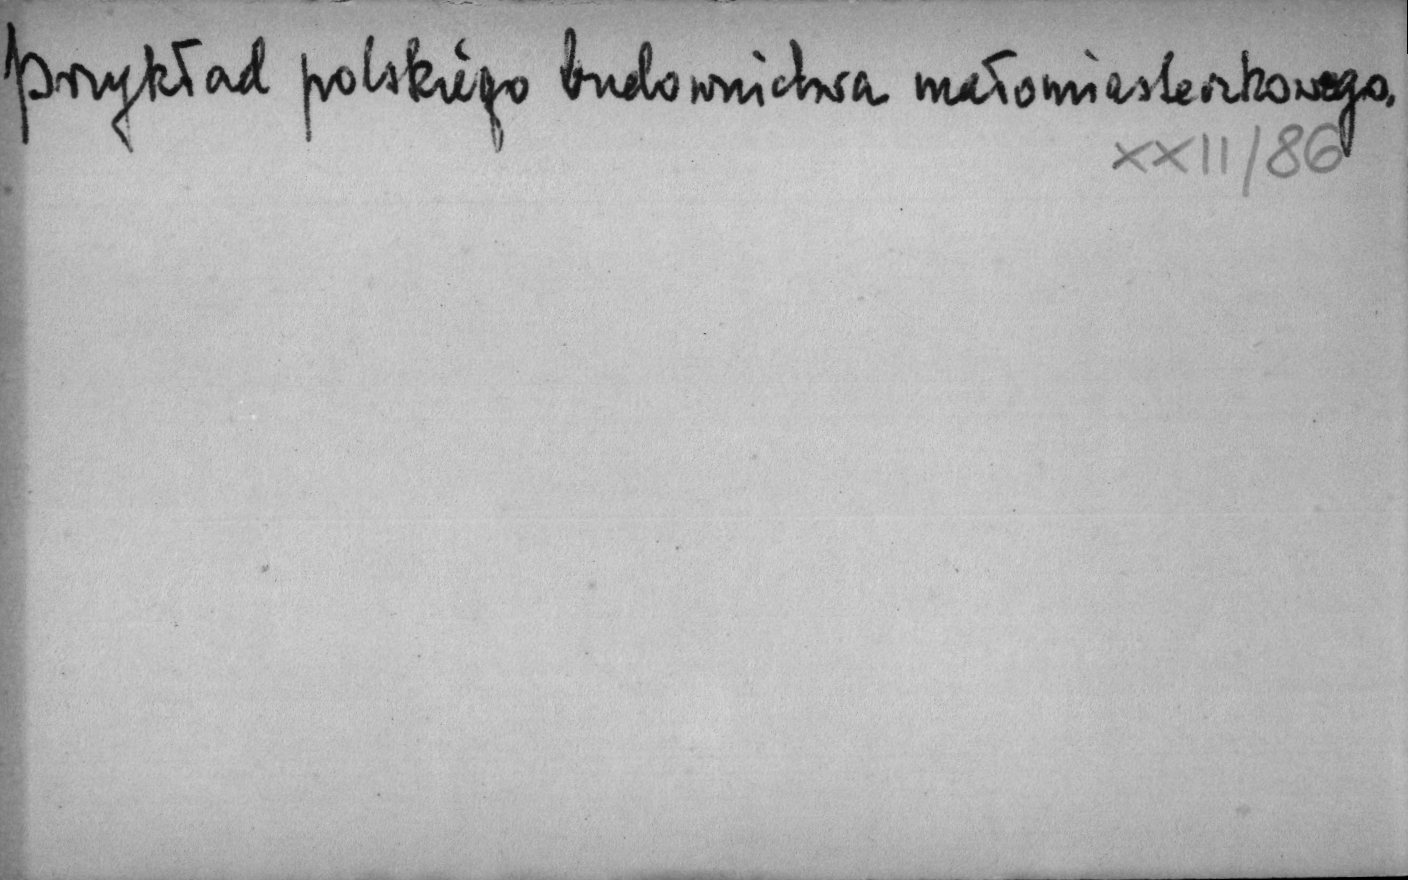 przykład polskiego budownictwa małomiasteczkowego.
XXII/86